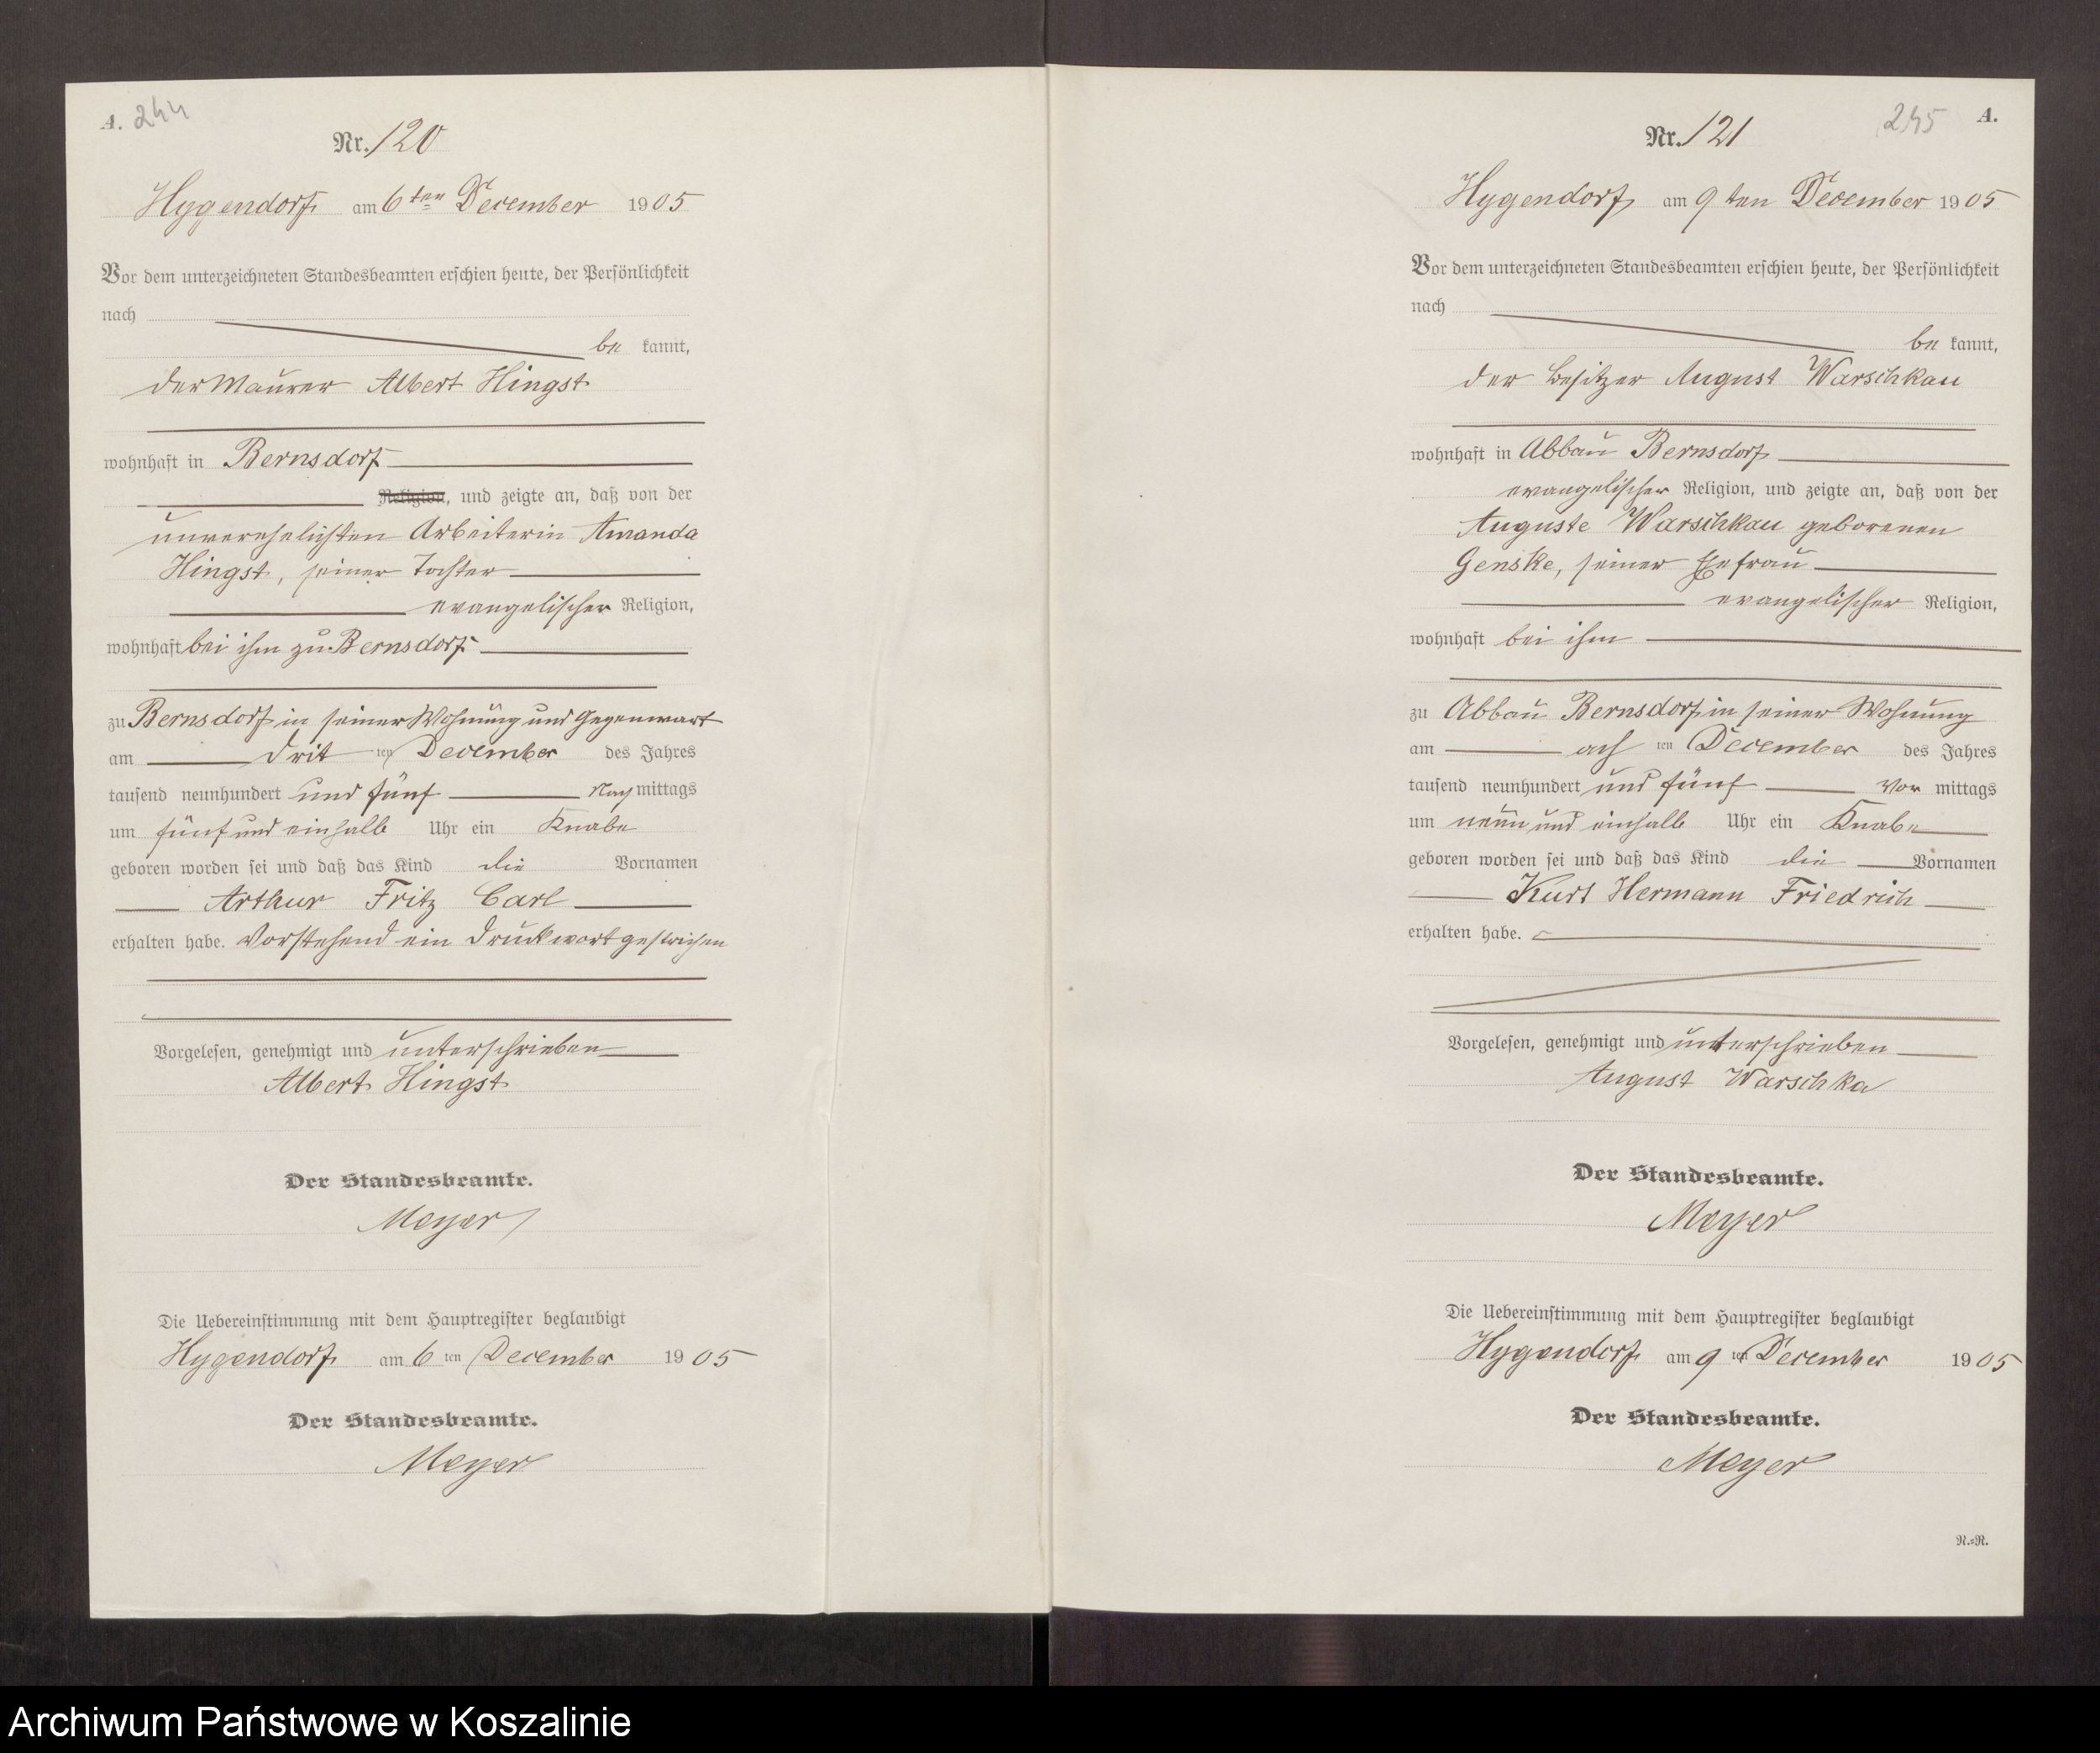 A. 244
Nr. 120
Hygendorf am 6ten December 1905
Vor dem unterzeichneten Standesbeamten erschien heute, der Persönlichkeit
nach
be kannt,
der Maurer Albert Hingst
wohnhaft in Bernsdorf
Religion, und zeigte an, daß von der
unverehelichten Arbeiterin Amanda
Hingst, seiner Tochter
evangelischer Religion,
wohnhaft bei ihm zu Bernsdorf
zu Bernsdorf in seiner Wohnung und Gegenwart
am drit ten December des Jahres
tausend neunhundert und fünf Nach mittags
um fünf und einhalb Uhr ein Knabe
geboren worden sei und daß das Kind die Vornamen
Arthur Fritz Carl
erhalten habe. Vorstehend ein Druckwort gestrichen
Vorgelesen, genehmigt und unterschrieben
Albert Hingst
Der Standesbeamte.
Meyer
Die Uebereinstimmung mit dem Hauptregister beglaubigt
Hygendorf am 6 ten December 1905
Der Standesbeamte.
Meyer
245 A.
Nr. 121
Hygendorf am 9ten December 1905
Vor dem unterzeichneten Standesbeamten erschien heute, der Persönlichkeit
nach
be kannt,
der Besitzer August Warschkau
wohnhaft in Abbau Bernsdorf
evangelischer Religion, und zeigte an, daß von der
Auguste Warschkau geborenen
Genske, seiner Ehefrau
evangelischer Religion,
wohnhaft bei ihm
zu Abbau Bernsdorf in seiner Wohnung
am ach ten December des Jahres
tausend neunhundert und fünf Vor mittags
um neun und einhalb Uhr ein Knabe
geboren worden sei und daß das Kind die Vornamen
Kurt Hermann Friedrich
erhalten habe.
Vorgelesen, genehmigt und unterschrieben
August Warschka
Der Standesbeamte.
Meyer
Die Uebereinstimmung mit dem Hauptregister beglaubigt
Hygendorf am 9 ten December 1905
Der Standesbeamte.
Meyer
N.=R.
Archiwum Państwowe w Koszalinie